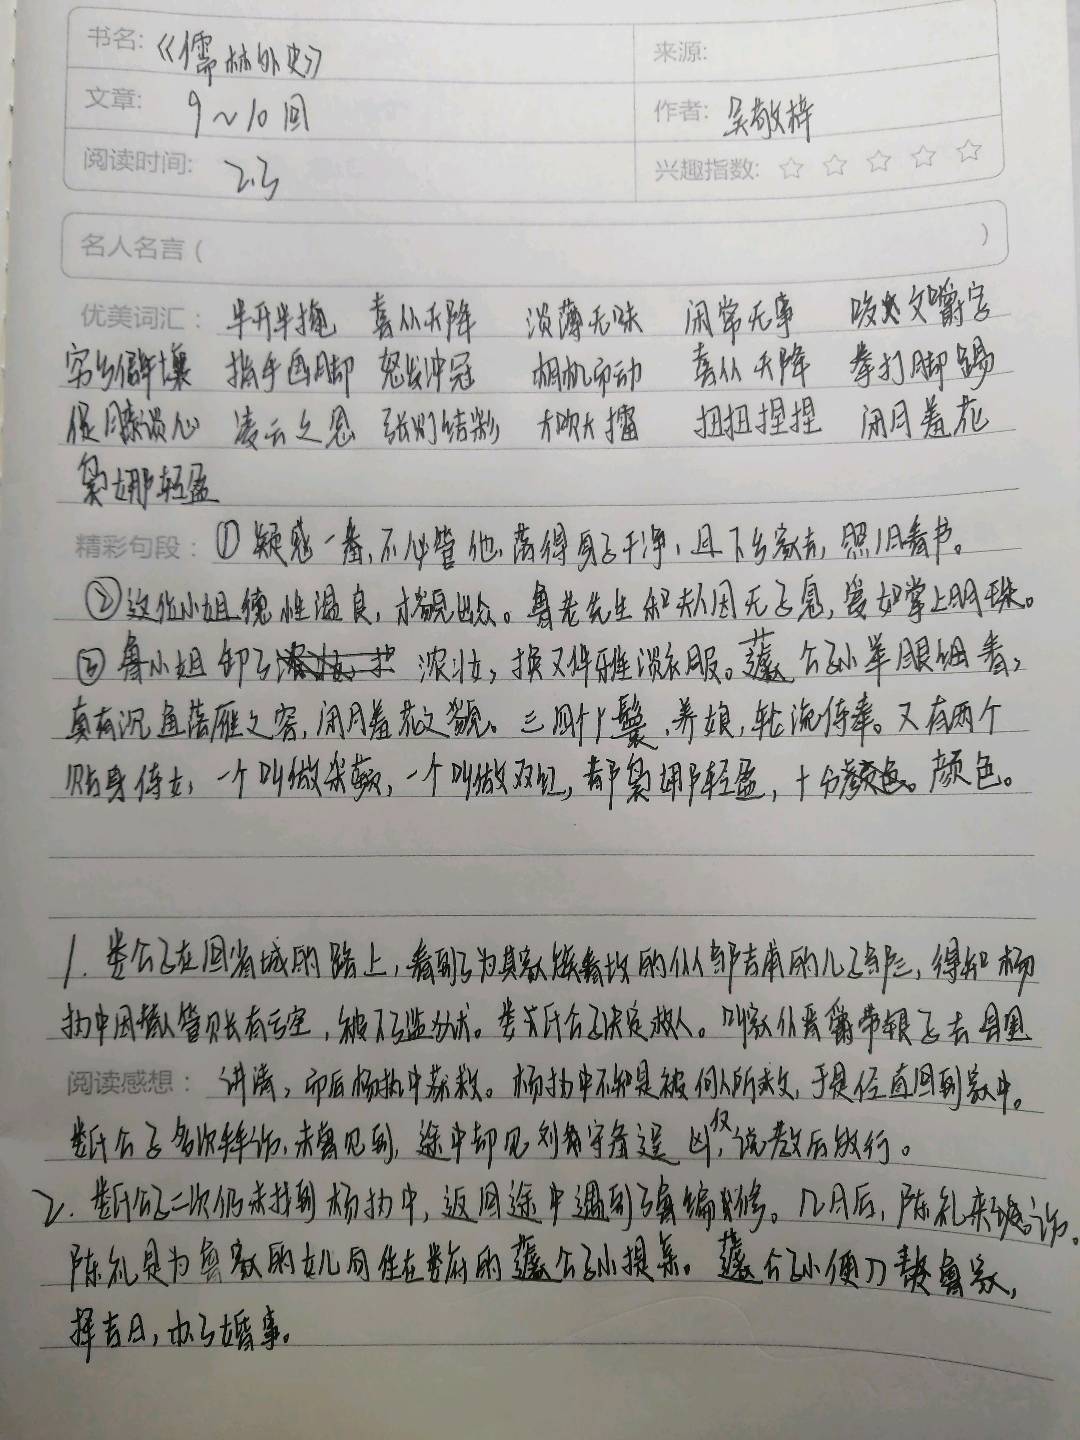 书名: 《儒林外史》 来源:
文章: 9～10回 作者: 吴敬梓
阅读时间: 2.3 兴趣指数: ☆ ☆ ☆ ☆ ☆
名人名言 ( )
优美词汇: 半开半掩 喜从天降 淡薄无味 闲常无事 咬文嚼字
穷乡僻壤 指手画脚 怒发冲冠 相机而动 喜从天降 拳打脚踢
促膝谈心 凌云之志 张灯结彩 大吹大擂 扭扭捏捏 闭月羞花
袅娜轻盈
精彩句段: ①疑惑一番,不必管他,落得身子干净,且下乡家去,照旧看书。
②这位小姐德性温良,才貌出众。鲁老先生和夫人因无子息,爱如掌上明珠。
③鲁小姐卸了浓妆,换又件雅淡衣服。蘧公孙举眼细看,
真有沉鱼落雁之容,闭月羞花之貌。三四个丫鬟,养娘,轮流侍奉。又有两个
贴身侍女,一个叫做采蘋,一个叫做双红,都袅娜轻盈,十分颜色。颜色。
1. 娄公子在回省城的路上,看到了为其家族看坟的仆人邹吉甫的儿子邹三,得知杨
执中因替人管账有亏空,被下了监狱。娄氏公子决定救人。叫家仆晋爵带银子去县里
阅读感想: 讲清,而后杨执中获救。杨执中不知是被何人所救,于是径直回到家中。
娄氏公子多次拜访,未曾见到,途中却见刘守备逞凶仅,说教后放行。
2. 娄氏公子二次仍未找到杨执中,返回途中遇到了鲁编修。几月后,陈礼来访。
陈礼是为鲁家的女儿向住在娄府的蘧公孙提亲。蘧公孙便入赘鲁家,
择吉日,办了婚事。